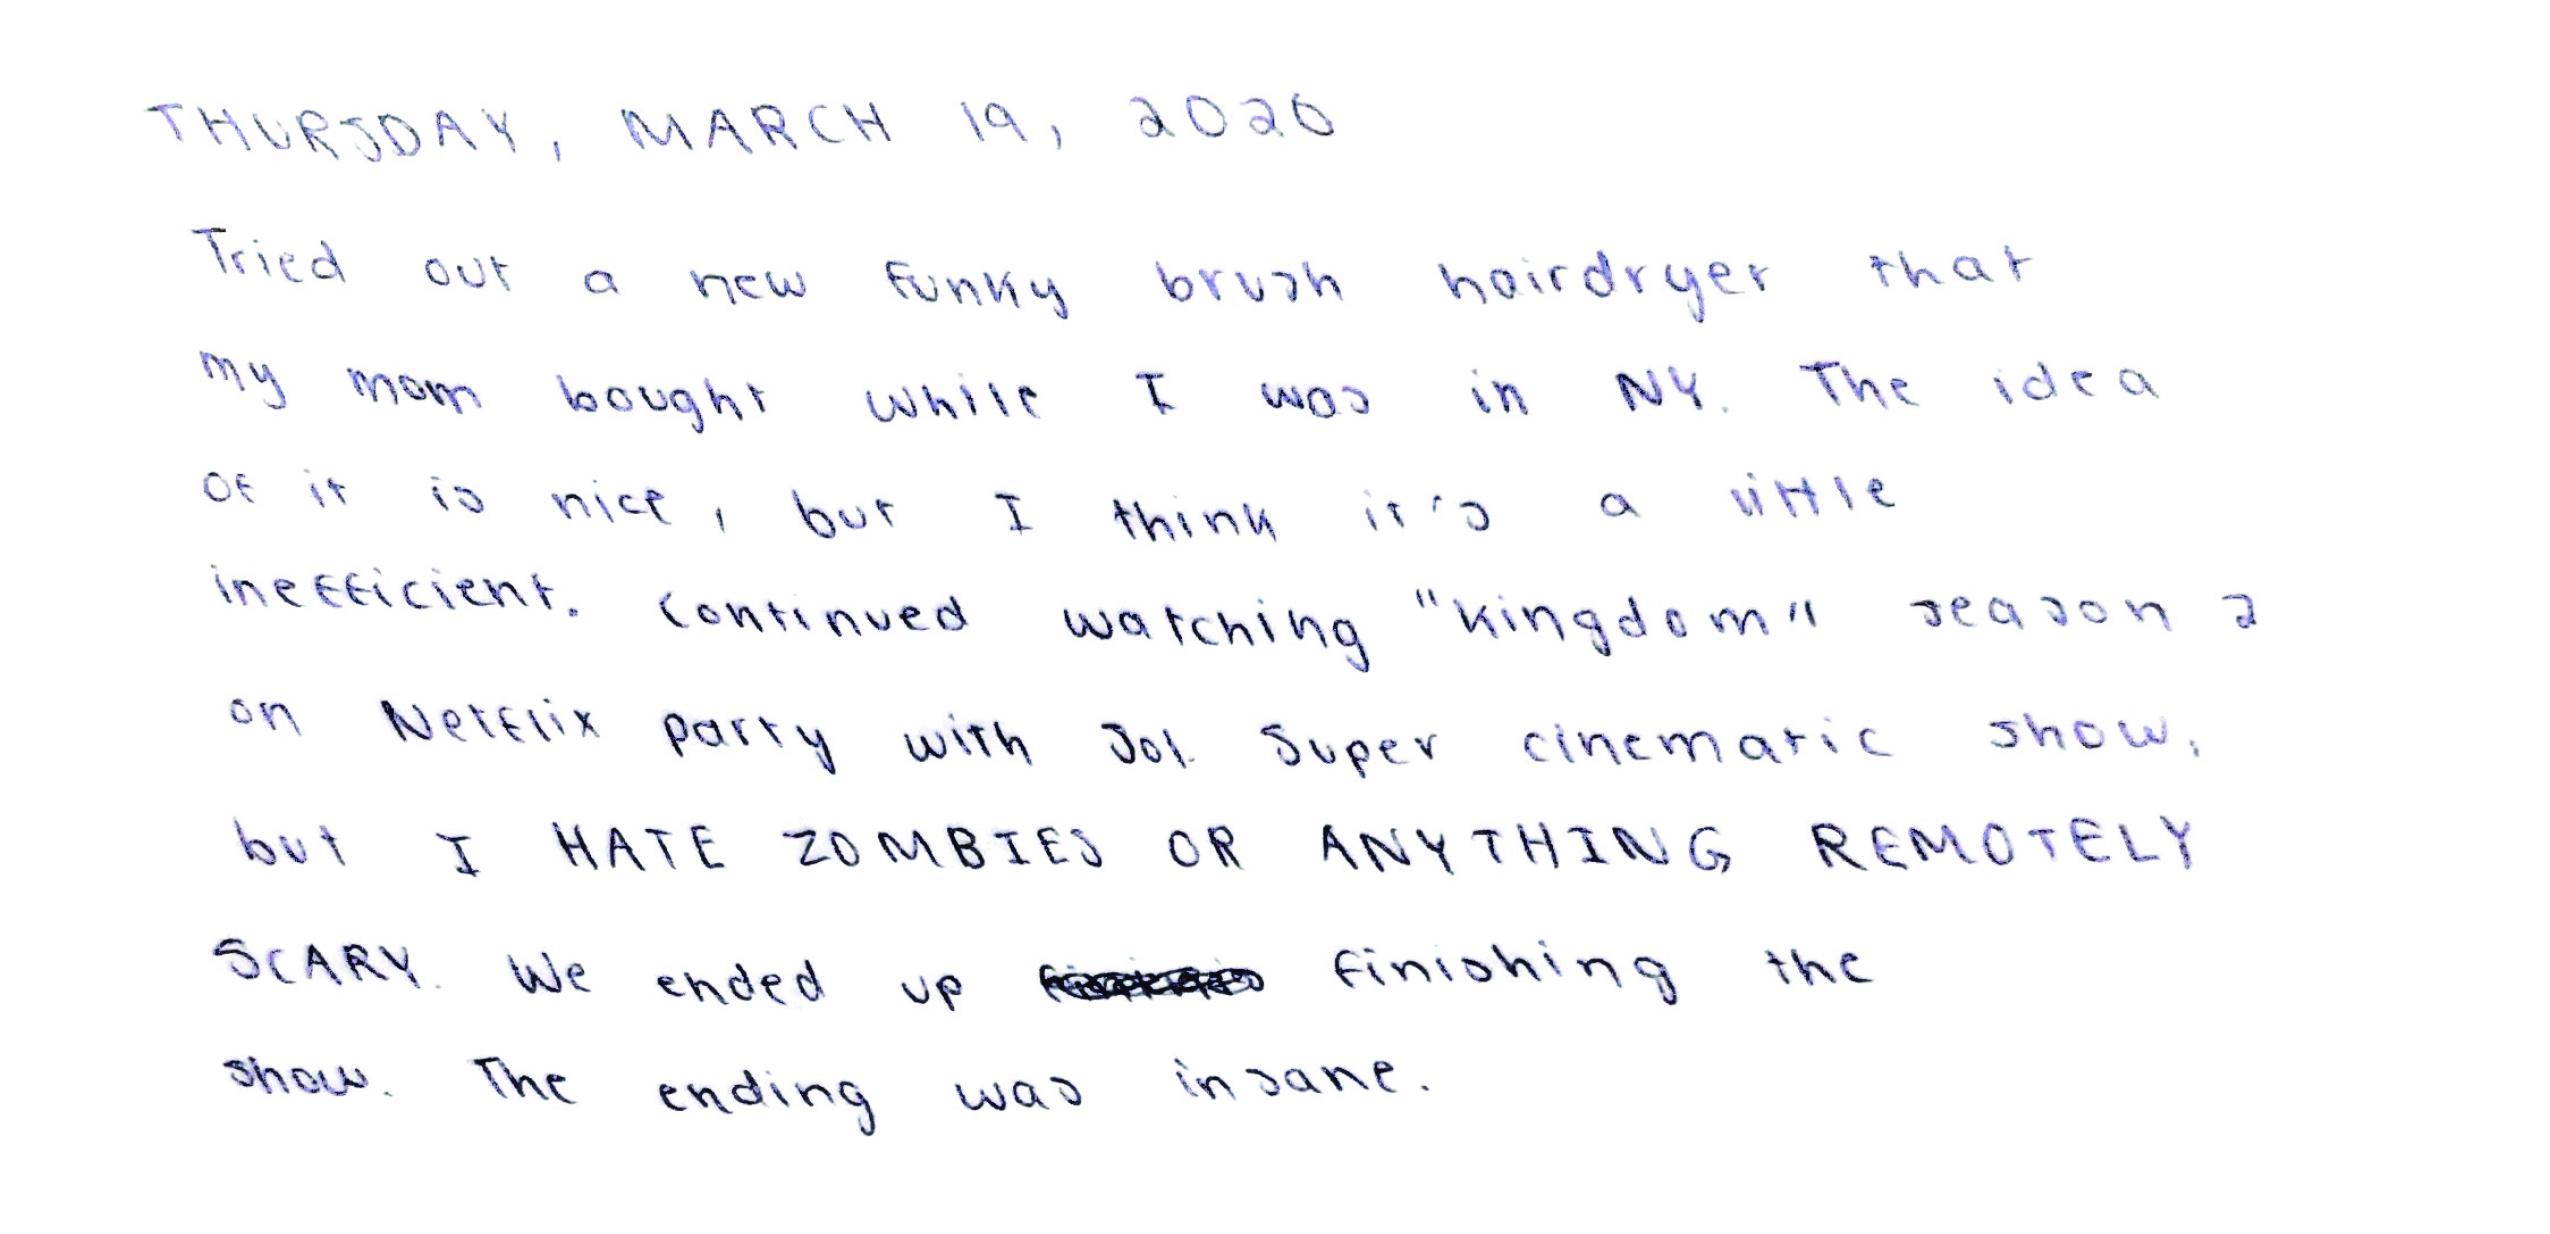 THURSDAY, MARCH 19, 2020
Tried out a new funky brush hairdryer that
my mom bought while I was in NY. The idea
of it is nice, but I think it's a little
inefficient. Continued watching "Kingdom" season 2
on Netflix party with Sol. Super cinematic show,
but I HATE ZOMBIES OR ANYTHING REMOTELY
SCARY. We ended up finishing the
show. The ending was insane.